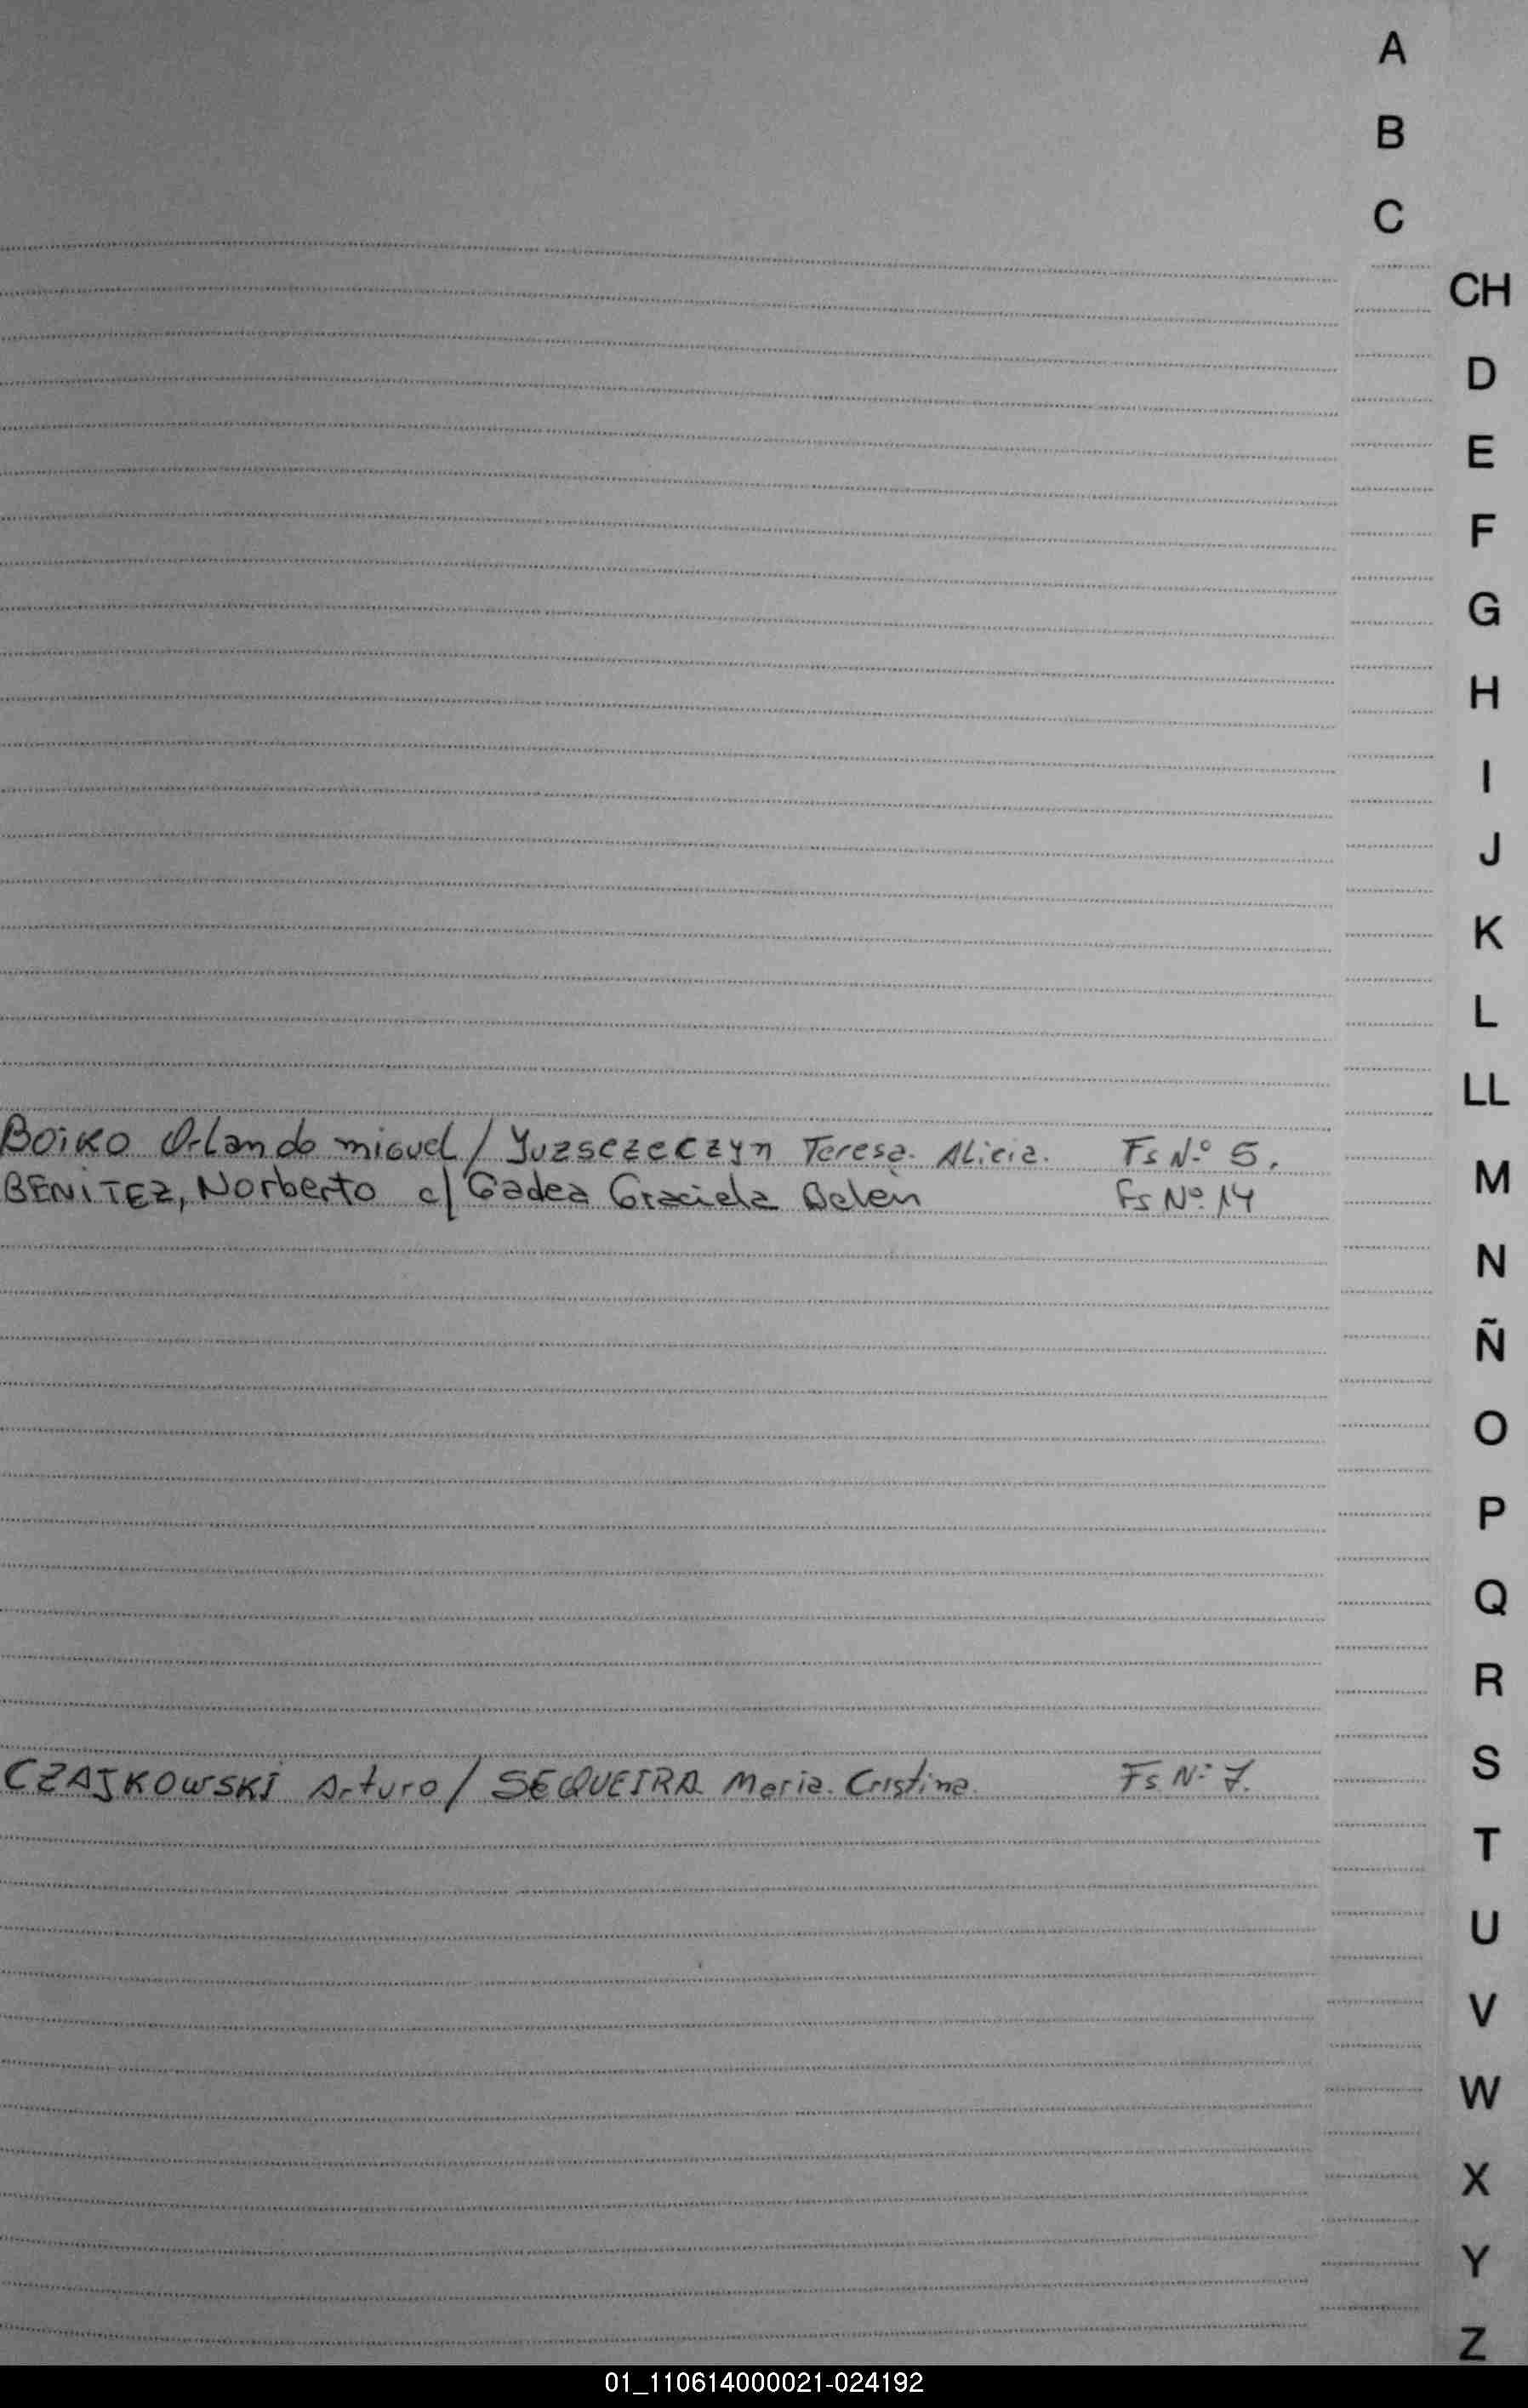 A
B
C
CH
D
E
F
G
H
I
J
K
L
LL
BOIKO Orlando miguel / Yuzsczeczyn Teresa. Alicia. Fs N.º 5.
M
BENITEZ, Norberto c/ Gadea Graciela Belèn Fs Nº 14
N
Ñ
O
P
Q
R
S
CZAJKOWSKI Arturo / SEQUEIRA Maria. Cristina. Fs N.º 7.
T
U
V
W
X
Y
Z
01_110614000021-024192